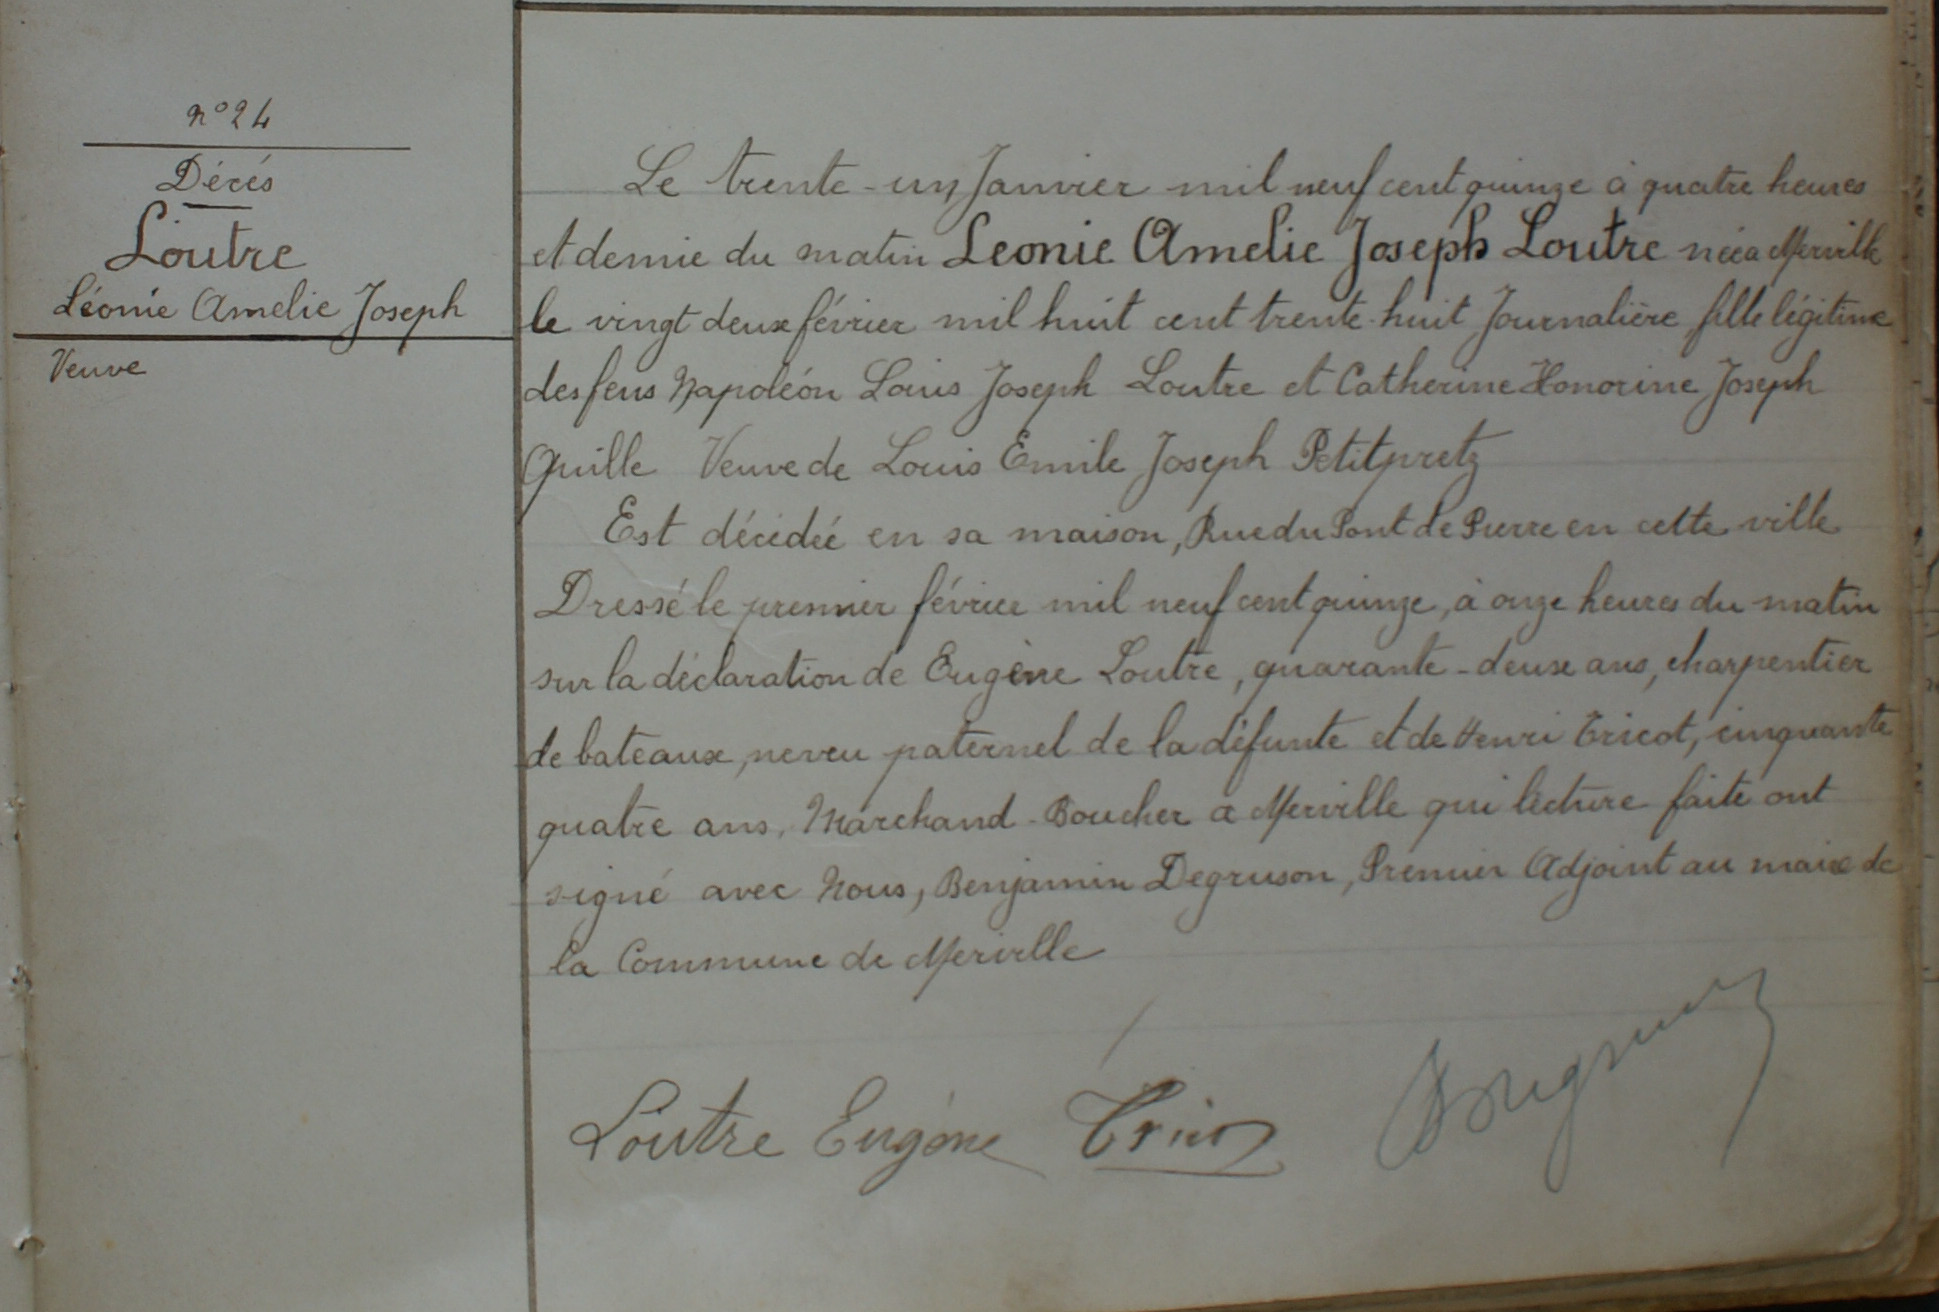 n° 24
Décés
Loutre
Léonie Amelie Joseph
Veuve
Le trente-un Janvier mil neuf cent quinze à quatre heures
et demie du matin Leonie Amelie Joseph Loutre née a Merville
le vingt deux février mil huit cent trente-huit Journalière fille légitime
des feus Napoléon Louis Joseph Loutre et Catherine Honorine Joseph
Quille Veuve de Louis Emile Joseph Petitpretz
Est décédée en sa maison, Rue du Pont de Pierre en cette ville
Dressé le premier février mil neuf cent quinze, à onze heures du matin
sur la déclaration de Eugène Loutre, quarante-deux ans, charpentier
de bateaux, neveu paternel de la défunte et de Henri Tricot, cinquante
quatre ans, Marchand-Boucher a Merville qui lecture faite ont
signé avec Nous, Benjamin Degruson, Premier Adjoint au maire de
la Commune de Merville
Loutre Eugène Tricot Degruson